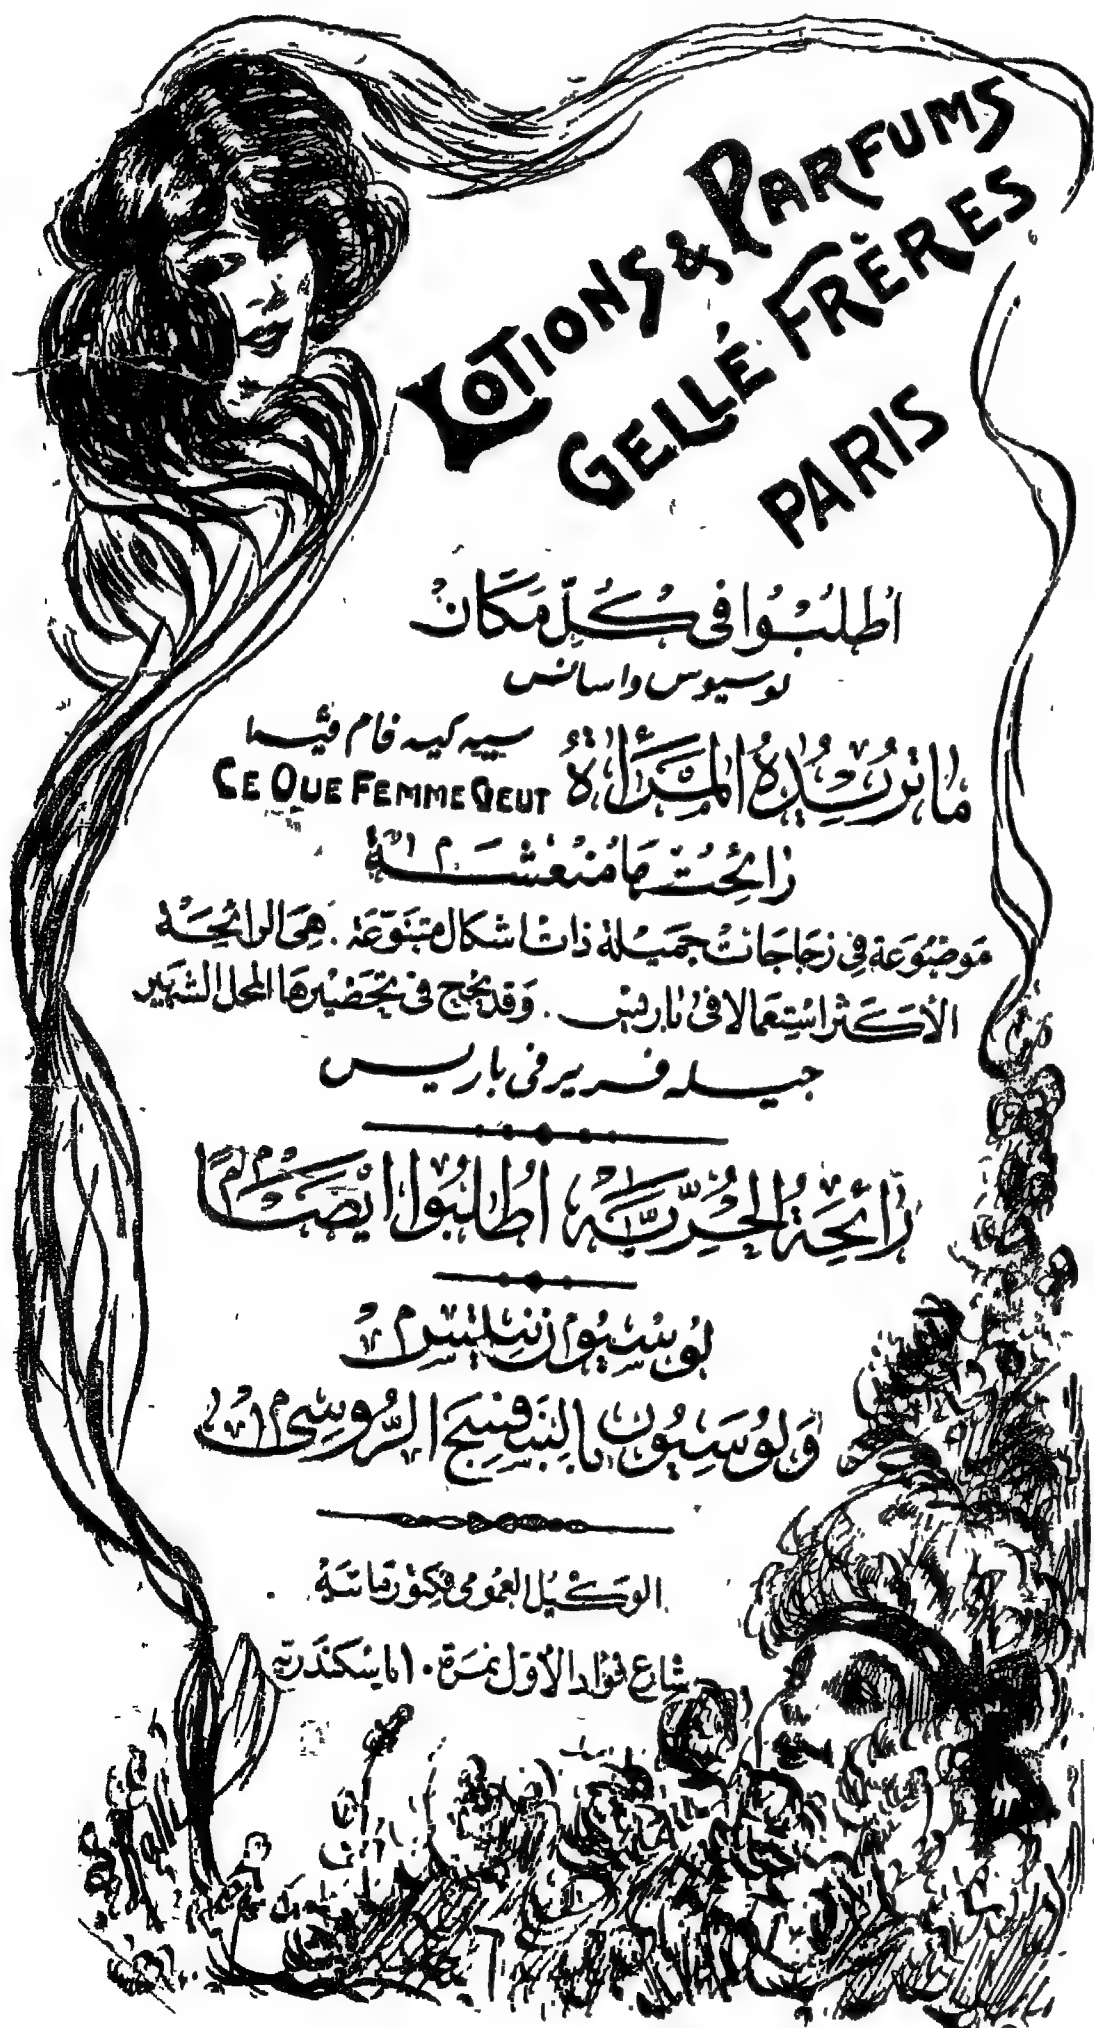 LOTIONS & PARFUMS
GELLÉ FRÈRES
PARIS
اُطلُبُوا فى كُلّ مَكَان
لوسيوس واسانس
ما تريُدُه المَرأة سيه كيه فام فيه
CE QUE FEMME VEUT
رَائحتُها مُنعشَة
مَوضُوعَة فى زجَاجَات جميلة ذات اشكال متنَوّعَة . هِىَ الرائحَة
الأكثر اسْتِعمَالا فى باريس . وَقد نجح فى تحضيرهَا المحل الشهير
جيله فرير فى باريس
رَائحَة الحُرِّيَّه اُطلبُوا ايْضًا
لوسيون نيليس
وَلوسيون بالبنَفسج الرُّوسى
الوكيل العمومى فكتور تباسه
شارع فؤاد الأول نمرة ١٠ باسكندرية